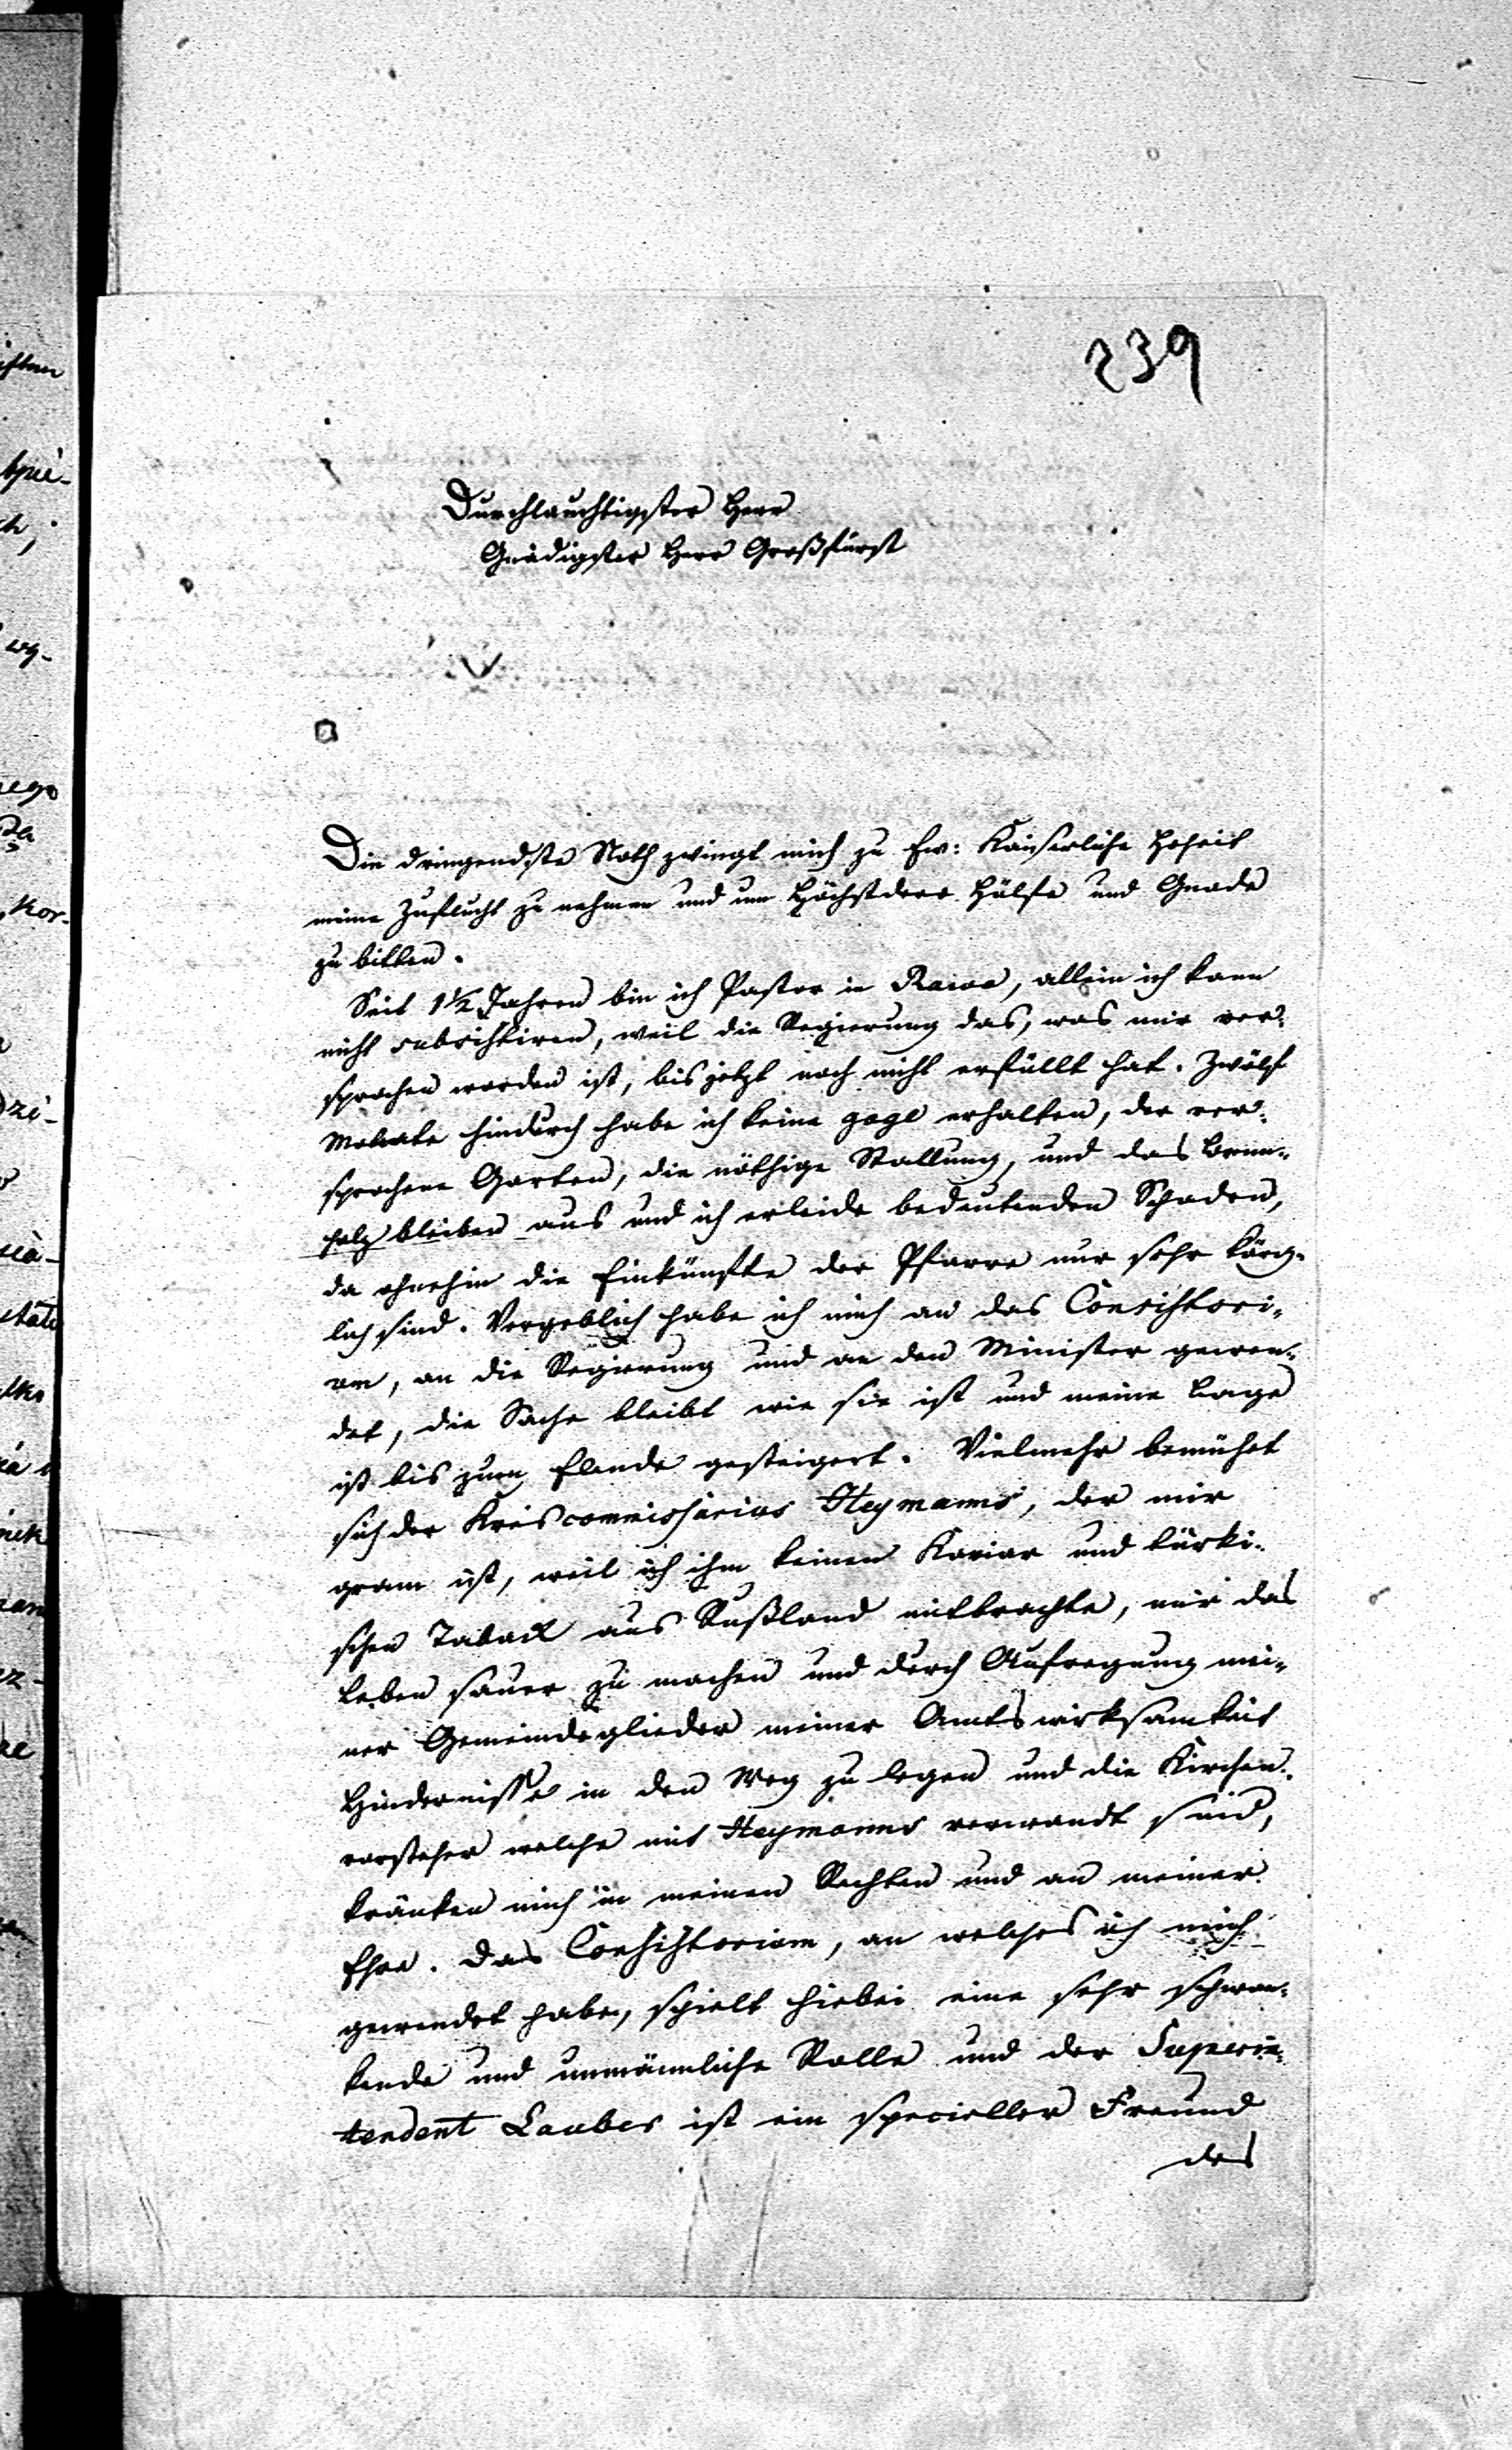 239
Durchlauchtigster Herr
Gnädigster Herr Großfürst
Die dringendste Noth zwingt mich zu Ew: Kaiserliche Hoheit
meine Zuflucht zu nehmen und um Höchstdero Hülfe und Gnade
zu bitten.
Seit 1½ Jahren bin ich Pastor in Rawa, allein ich kann
nicht subsistiren, weil die Regierung das, was mir ver-
sprochen worden ist, bis jetzt noch nicht erfüllt hat. Zwölf
Monate hindurch habe ich keine gage erhalten, der ver-
sprochene Garten, die nöthige Stallung, und das Brenn-
holz bleiben aus und ich erleide bedeutenden Schaden,
da ohnehin die Einkünfte der Pfarre nur sehr kärg-
lich sind. Vergeblich habe ich mich an das Consistori-
um, an die Regierung und an den Minister gewen-
det, die Sache bleibt wie sie ist und meine Lage
ist bis zum Elende gesteigert. Vielmehr bemühet
sich der Kreiscommissarius Heymanns, der mir
gram ist, weil ich ihm keinen Kaviar und türki-
schen Taback aus Rußland mitbrachte, mir das
Leben sauer zu machen und durch Aufregung mei-
ner Gemeindeglieder meiner Amtswirksamkeit
Hindernisse in den Weg zu legen und die Kirchen-
vorsteher welche mit Heymanns verwandt sind,
kränken mich in meinen Rechten und an meiner
Ehre. Das Consistorium, an welches ich mich
gewendet habe, spielt hiebei eine sehr schwan-
kende und unmännliche Rolle und der Superin-
tendent Lauber ist ein specieller Freund
des